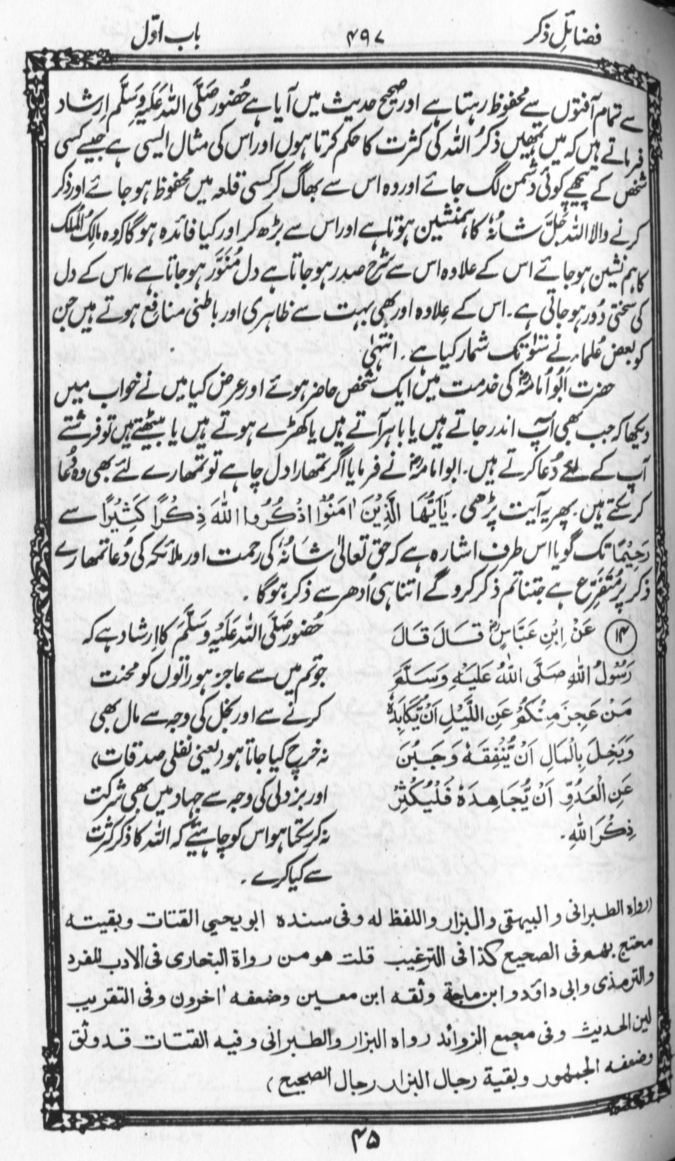 فضائلِ ذکر
۴۹۷
باب اوّل
سے تمام آفتوں سے محفوظ رہتا ہے اور صحیح حدیث میں آیا ہے حُضور صَلَّی اللہُ عَلَیْہِ وَسَلَّم اِرشاد
فرماتے ہیں کہ میں تمھیں ذکرُ اللہ کی کثرت کا حکم کرتا ہوں اور اس کی مثال ایسی ہے جیسے کسی
شخص کے پیچھے کوئی دشمن لگ جائے اور وہ اس سے بھاگ کر کسی قلعہ میں محفوظ ہو جائے اور ذکر
کرنے والا اللہ جَلَّ شانُہٗ کا ہمنشین ہوتا ہے اور اس سے بڑھ کر اور کیا فائدہ ہوگا کہ وہ مالکُ المُلک
کا ہم نشین ہو جائے اس کے علاوہ اس سے شرحِ صدر ہو جاتا ہے دل مُنَوَّر ہو جاتا ہے، اس کے دل
کی سختی دُور ہو جاتی ہے۔ اس کے علاوہ اور بھی بہت سے ظاہری اور باطنی منافع ہوتے ہیں جن
کو بعض عُلماء نے سَنّو تک شمار کیا ہے۔ انتہیٰ
حضرت اَبُو اُمَامہؓ کی خدمت میں ایک شخص حاضر ہوئے اور عرض کیا میں نے خواب میں
دیکھا کہ جب بھی آپ اندر جاتے ہیں یا باہر آتے ہیں یا کھڑے ہوتے ہیں یا بیٹھتے ہیں تو فرشتے
آپ کے لئے دُعا کرتے ہیں۔ ابو امامہؓ نے فرمایا اگر تمھارا دل چاہے تو تمھارے لئے بھی وہ دُعا
کرسکتے ہیں۔ پھر یہ آیت پڑھی۔ یٰٓاَیُّھَا الَّذِیْنَ اٰمَنُوْا اذْکُرُوا اللہَ ذِکْرًا کَثِیْرًا سے
رَحِیْمًا تک گویا اس طرف اشارہ ہے کہ حق تعالٰی شَانُہٗ کی رحمت اور ملائکہ کی دُعا تمھارے
ذکر پر مُتَفَرِّع ہے جتنا تم ذکر کرو گے اتنا ہی اُدھر سے ذکر ہوگا۔
۱۴ عَنْ اِبْنِ عَبَّاسٍؓ قَالَ قَالَ
رَسُوْلُ اللہِ صَلَّی اللہُ عَلَیْہِ وَسَلَّمَ
مَنْ عَجِزَ مِنْکُمْ عَنِ اللَّیْلِ اَنْ یُّکَابِدَہٗ
وَبَخِلَ بِالْمَالِ اَنْ یُّنْفِقَہٗ وَجَبُنَ
عَنِ الْعَدُوِّ اَنْ یُّجَاھِدَہٗ فَلْیُکْثِرْ
ذِکْرَ اللہِ۔
حُضور صَلَّی اللہُ عَلَیْہِ وَسَلَّمَ کا اِرشاد ہے کہ
جو تم میں سے عاجز ہو راتوں کو محنت
کرنے سے اور بُخل کی وجہ سے مال بھی
نہ خرچ کیا جاتا ہو (یعنی نفلی صدقات)
اور بزدلی کی وجہ سے جہاد میں بھی شرکت
نہ کرسکتا ہو اس کو چاہیئے کہ اللہ کا ذکر کثرت
سے کیا کرے۔
(رواہ الطبرانی و البیہقی والبزار واللفظ لہ وفی سندہ ابو یحیی القتات وبقیتہ
محتج بھم فی الصحیح کذا فی الترغیب قلت ھو من رواۃ البخاری فی الادب المفرد
والترمذی وابی داؤد وابن ماجۃ وثقہ ابن معین وضعفہ اٰخرون وفی التقریب
لین الحدیث وفی مجمع الزوائد رواہ البزار والطبرانی وفیہ القتات قد وثق
وضعفہ الجمہور وبقیۃ رجال البزار رجال الصحیح)
۴۵